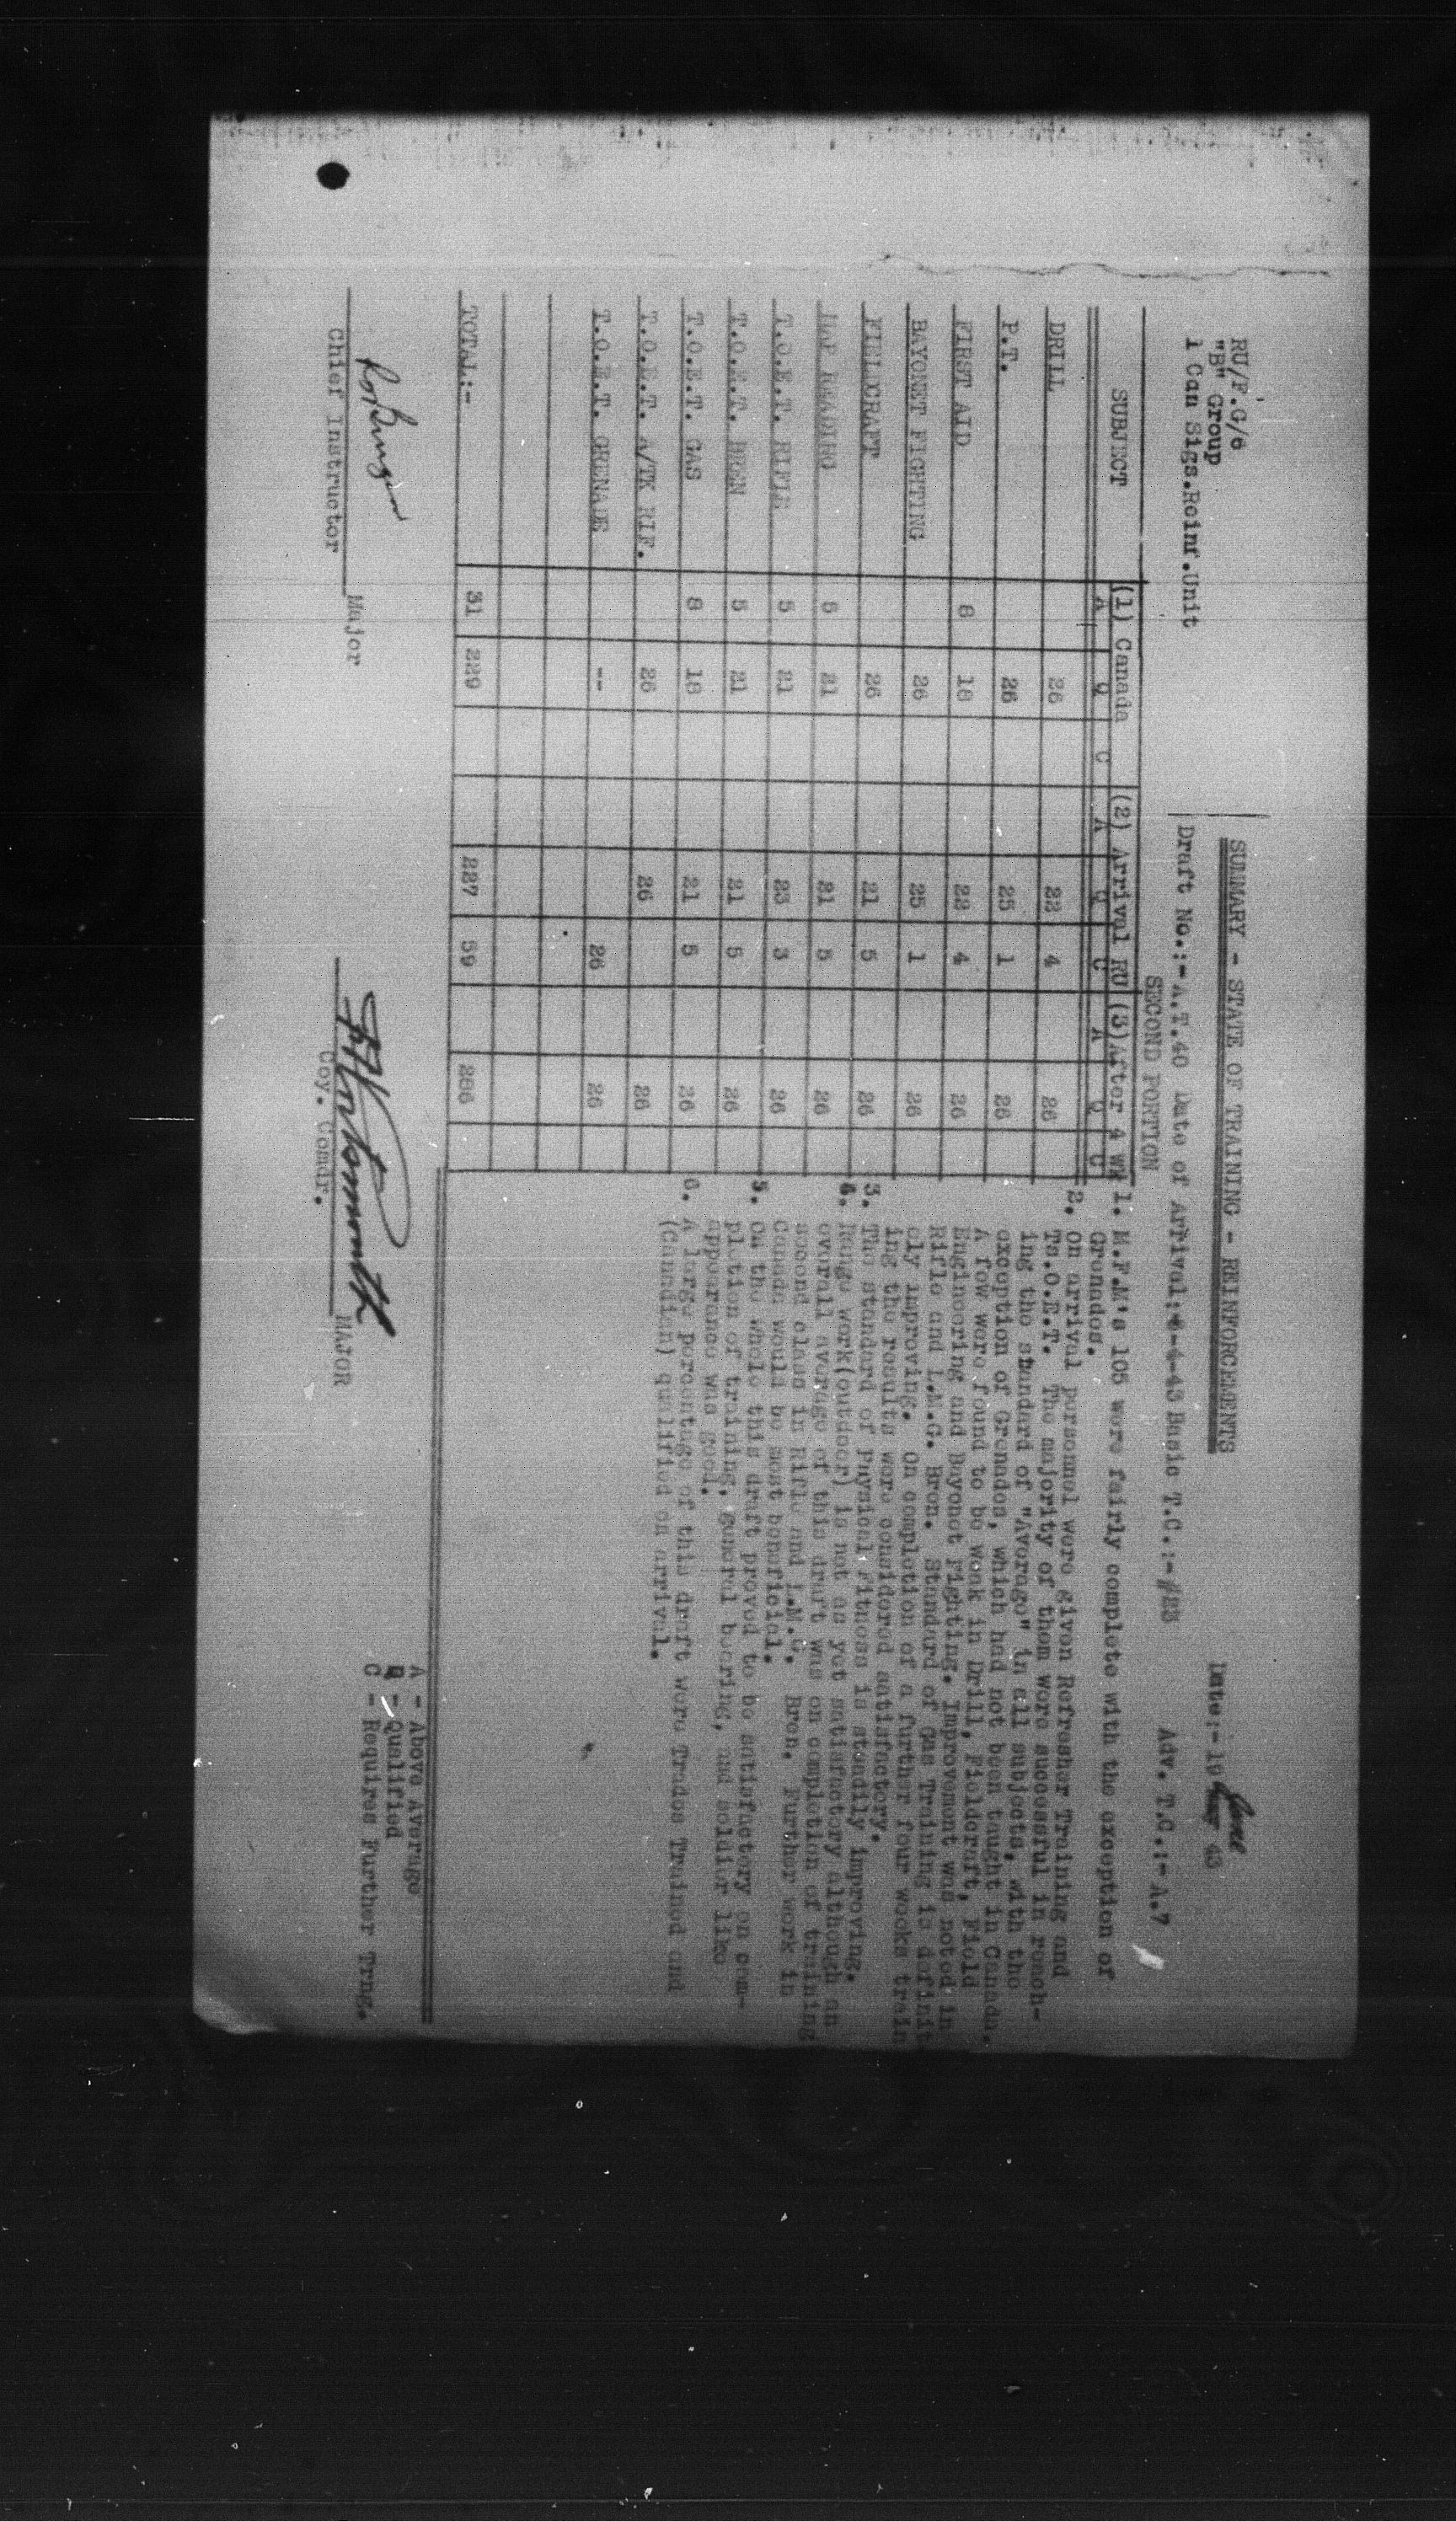 RU/F.G/6
"B" Group
1 Can Sigs.Reinf.Unit
SUMMARY - STATE OF TRAINING - REINFORCEMENTS
Date:- 10 June 43
Draft No.:- A.T.40 Date of Arrival:-4-43 Basic T.C.:- #23 Adv. T.C.:- A.7
SECOND PORTION
SUBJECT (1) Canada (2) Arrival RU (3)After 4 Wk
A Q C A Q C A Q C
DRILL 26 22 4 26
P.T. 26 25 1 26
FIRST AID 8 18 22 4 26
BAYONET FIGHTING 26 25 1 26
FIELDCRAFT 26 21 5 26
MAP READING 5 21 21 5 26
T.O.E.T. RIFLE 5 21 23 3 26
T.O.E.T. BREN 5 21 21 5 26
T.O.E.T. GAS 8 18 21 5 26
T.O.E.T. A/TK RIF. 26 26 26
T.O.E.T. GRENADE -- 26 26
TOTAL:- 31 229 227 59 286
1. M.F.M's 105 were fairly complete with the exception of
Grenades.
2. On arrival personnel were given Refresher Training and
Ts.O.E.T. The majority of them were successful in reach-
ing the standard of "Average" in all subjects, with the
exception of Grenades, which had not been taught in Canada.
A few were found to be weak in Drill, Fieldcraft, Field
Engineering and Bayonet Fighting. Improvement was noted in
Rifle and L.M.G. Bren. Standard of Gas Training is definit
ely improving. On completion of a further four weeks train
ing the results were considered satisfactory.
3. The standard of Physical Fitness is steadily improving.
4. Range work(outdoor) is not as yet satisfactory although an
overall average of this draft was on completion of training
second class in Rifle and L.M.G. Bren. Further work in
Canada would be most beneficial.
5. On the whole this draft proved to be satisfactory on com-
pletion of training, general bearing, and soldier like
appearance was good.
6. A large percentage of this draft were Trades Trained and
(Canadian) qualified on arrival.
A - Above Average
Q - Qualified
C - Requires Further Trng.
Major
Chief Instructor
MAJOR
Coy. Comdr.